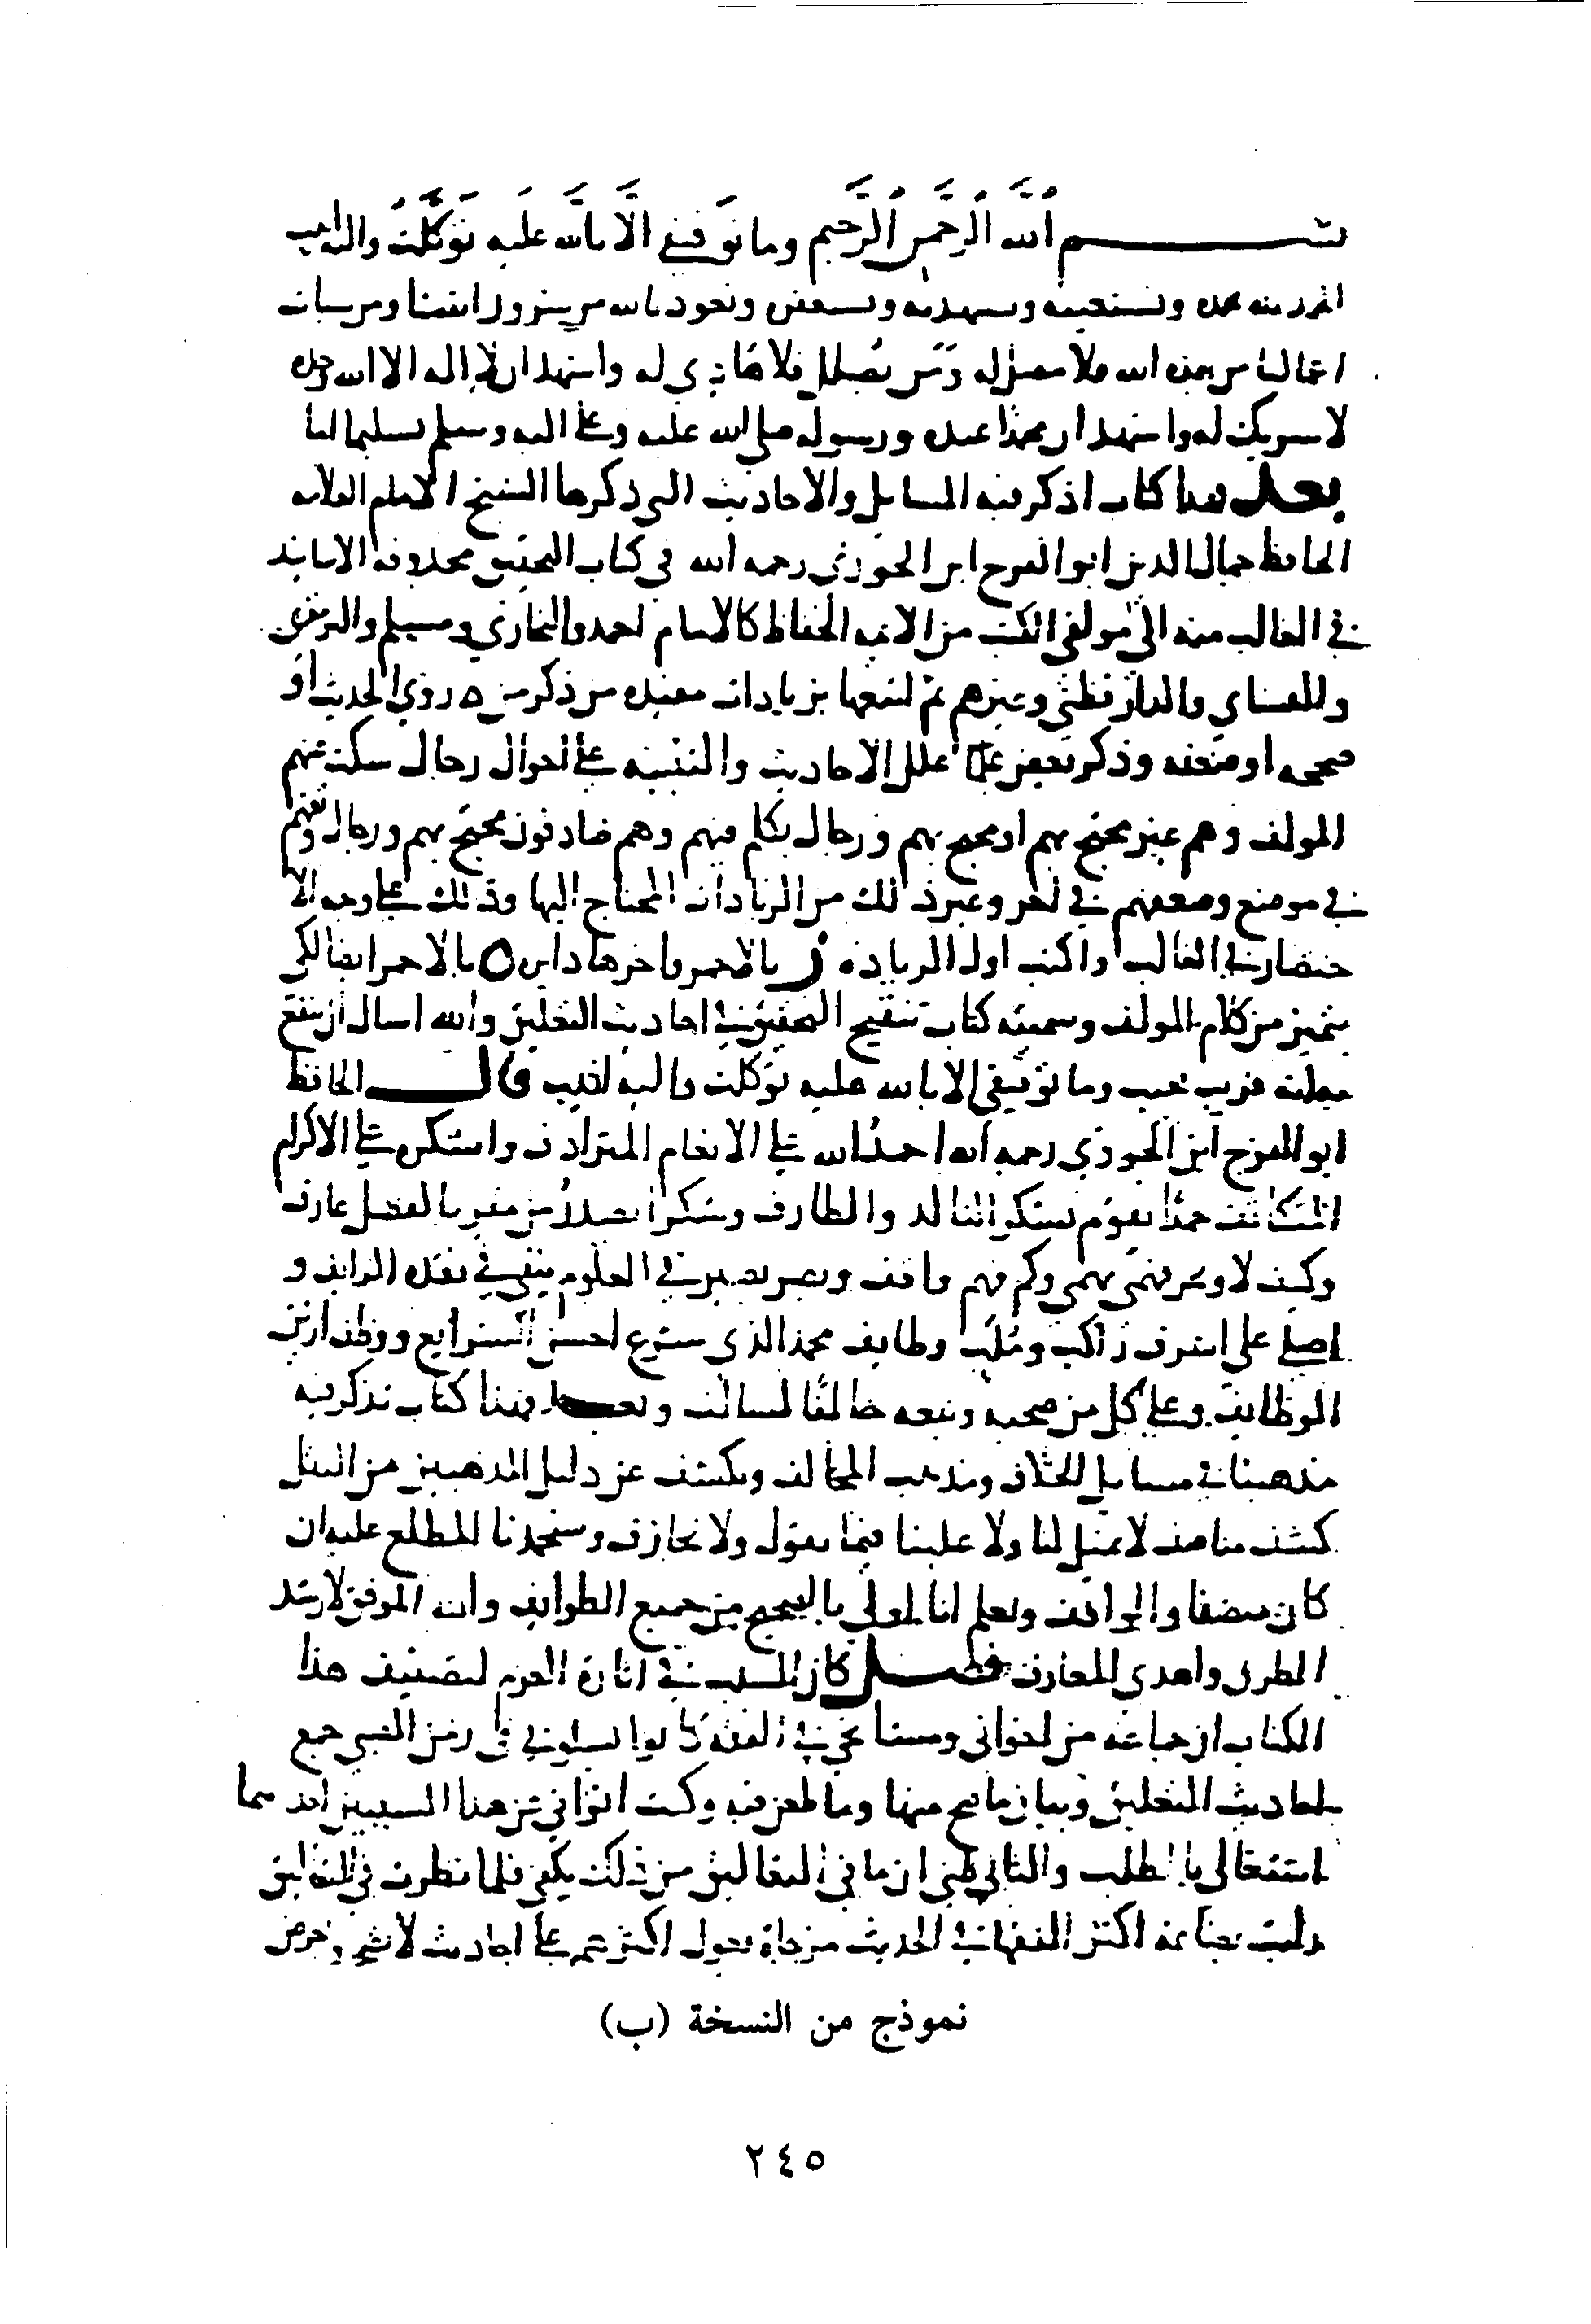 بسم الله الرحمن الرحيم وما توفيقي الا بالله عليه توكلت واليه انيب
الحمد لله نحمده ونستعينه ونستهديه ونستغفره ونعوذ بالله من شرور انفسنا ومن سيات
اعمالنا من يهده الله فلا مضل له ومن يضلل فلا هادي له واشهد ان لا إله الا الله وحده
لا شريك له واشهد ان محمدا عبده ورسوله صلى الله عليه وعلى اله وسلم تسليما اما
بعد فهذا كتاب اذكر فيه المسايل والاحاديث التي ذكرها الشيخ الامام العلامه
الحافظ جمال الدين ابو الفرج ابن الجوزي رحمه الله في كتاب التحقيق محذوفه الاسانيد
في الغالب منه الى مولفي الكتب من الايمه الحفاظ كالامام احمد والبخاري ومسلم والترمذي
والنساي والدارقطني وغيرهم ثم اتبعها بزيادات مفيده من ذكر من روى الحديث او
صححه او ضعفه وذكر بعض علل الاحاديث والتنبيه على احوال رجال سكت عنهم
المولف وهم غير محتج بهم او محتج بهم ورجال تكلم فيهم وهم صادقون محتج بهم ورجال وثقهم
في موضع وضعفهم في اخر وغير ذلك من الزيادات المحتاج اليها وذلك على وجه الا
ختصار في الغالب واكتب اول الزياده ز بالاحمر واخرها دايره ٥ بالاحمر ايضا لكي
يتميز من كلام المولف وسميته كتاب تنقيح التحقيق في احاديث التعليق والله اسال ان ينفع
به انه قريب مجيب وما توفيقي الا بالله عليه توكلت واليه انيب قال الحافظ
ابو الفرج ابن الجوزي رحمه الله احمد الله على الانعام المترادف واشكره على الاكرام
المتكاثف حمدا يقوم بشكر التالد والطارف وشكرا يصدر من مقر بالفضل عارف
وكيف لا وغيري فهمي بهمي وكم فهم واقف وبصر بصير في العلوم ينتقي في نقده الزايف و
اصلي على اشرف راكب وملب وطايف محمد الذي شرع احسن الشرايع ووظف ازين
الوظايف وعلى كل من صحبه وتبعه من خالف لسالف وبعد فهذا كتاب نذكر فيه
مذهبنا في مسايل الخلاف ومذهب المخالف ونكشف عن دليل المذهبين من النقل
كشف مناصف لا نميل لنا ولا علينا فيما نقول ولا نجازف وسيحمدنا المطلع عليه ان
كان منصفا والواقف ونعلم اننا اولى بالصحيح من جميع الطوايف والله الموفق لارشد
الطرق واهدى المعارف فصل كان السبب في اثارة العزم لتصنيف هذا
الكتاب ان جماعة من اخواني ومشايخي في الفقه كانوا يسلوني في زمن الصبى جمع
احاديث التعليق وبيان ما صح منها وما طعن فيه وكنت اتوانى عن هذا لسببين احدهما
اشتغالي بالطلب والثاني ظني ان ما في التعاليق من ذلك يكفي فلما نظرت في التعاليق
رايت بضاعة اكثر الفقهاء في الحديث مزجاة يعول اكثرهم على احاديث لا تصح ويعرض
نموذج من النسخة (ب)
٢٤٥